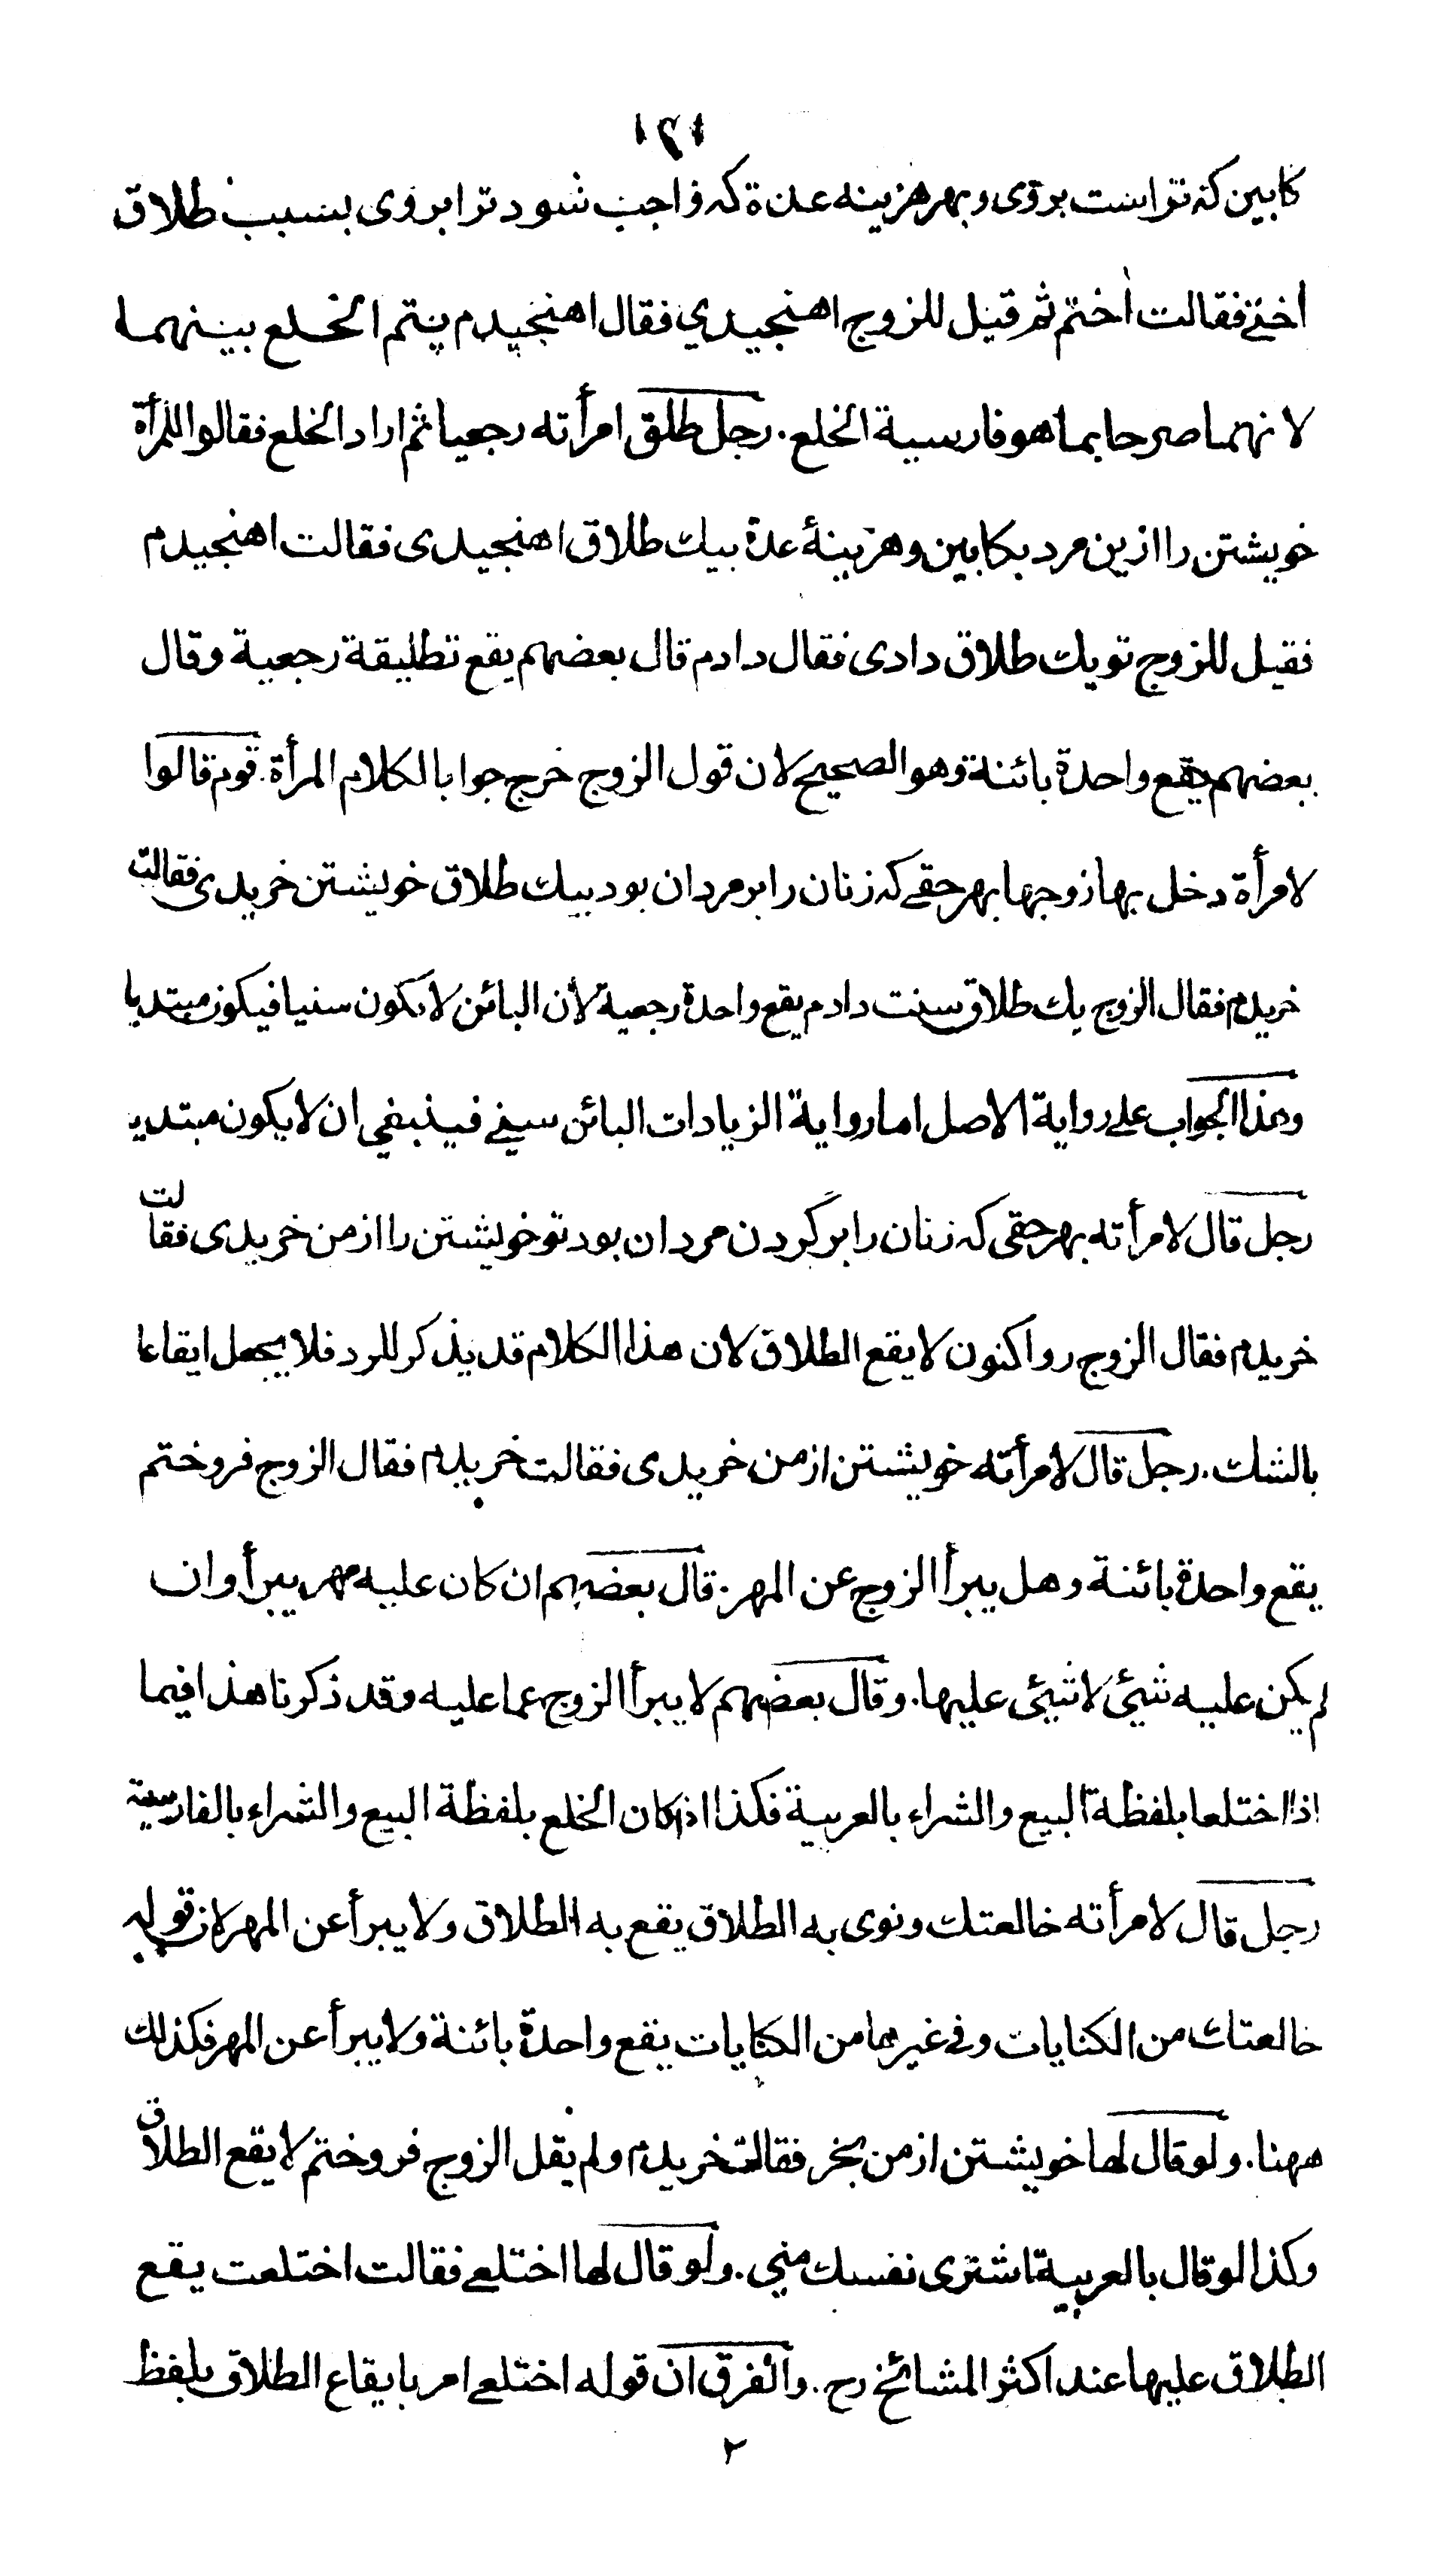 كابين كه تراست بروى وبهر هزينه عدة كه واجب شود ترا بروى بسبب طلاق
اختى فقالت اختم ثم قيل للزوج اهنجيدي فقال اهنجيدم يتم الخلع بينهما
لانهما صرحا بما هو فارسية الخلع . رجل طلق امرأته رجعيا ثم اراد الخلع فقالوا للمرأة
خويشتن را ازين مرد بكابين وهزينۀ عدة بيك طلاق اهنجيدى فقالت اهنجيدم
فقيل للزوج تو يك طلاق دادى فقال دادم قال بعضهم يقع تطليقة رجعية وقال
بعضهم يقع واحدة بائنة وهو الصحيح لان قول الزوج خرج جوابا لكلام المرأة . قوم قالوا
لامرأة دخل بها زوجها بهر حقے كه زنان را بر مردان بود بيك طلاق خويشتن خريدى فقالت
خريدم فقال الزوج يك طلاق سنت دادم يقع واحدة رجعية لأن البائن لا يكون سنيا فيكون مبتديا
وهذا الجواب على رواية الاصل اما رواية الزيادات البائن سني فينبغي ان لا يكون مبتديا
رجل قال لامرأته بهر حقى كه زنان را بر گردن مردان بود تو خويشتن را از من خريدى فقالت
خريدم فقال الزوج رو اكنون لا يقع الطلاق لان هذا الكلام قد يذكر للرد فلا يجعل ايقاعا
بالشك . رجل قال لامرأته خويشتن از من خريدى فقالت خريدم فقال الزوج فروختم
يقع واحدة بائنة وهل يبرأ الزوج عن المهر . قال بعضهم ان كان عليه مهر يبرأ وان
لم يكن عليه شيئ لا شيئ عليها . وقال بعضهم لا يبرأ الزوج عما عليه وقد ذكرنا هذا فيما
اذا اختلعا بلفظة البيع والشراء بالعربية فكذا اذا كان الخلع بلفظة البيع والشراء بالفارسية
رجل قال لامرأته خالعتك ونوى به الطلاق يقع به الطلاق ولا يبرأ عن المهر لان قوله
خالعتك من الكنايات وفي غيرهما من الكنايات يقع واحدة بائنة ولا يبرأ عن المهر فكذلك
ههنا . ولو قال لها خويشتن از من بخر فقالت خريدم ولم يقل الزوج فروختم لا يقع الطلاق
وكذا لو قال بالعربية اشترى نفسك مني . ولو قال لها اختلعى فقالت اختلعت يقع
الطلاق عليها عند اكثر المشائخ رح . والفرق ان قوله اختلعى امر بايقاع الطلاق بلفظ
٢